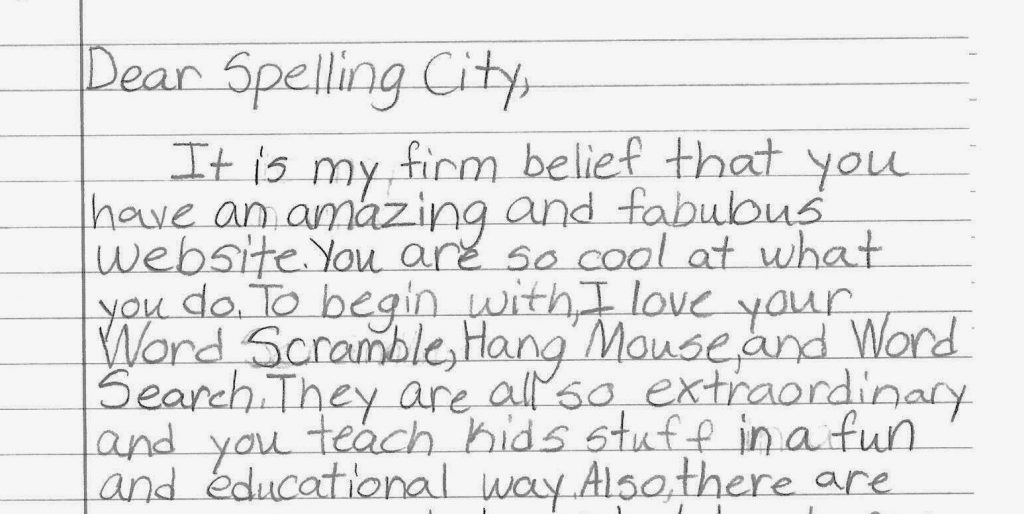 Dear Spelling City,
It is my firm belief that you
have an amazing and fabubus
website. You are so cool at what
you do. To begin with, I love your
Word Scramble, Hang Mouse, and Word
Search. They are all so extraordinary
and you teach kids stuff in a fun
and educational way. Also, there are